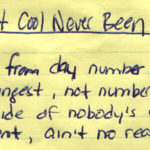 t Cool Never Been
from day number
ngest, not number
ide of nobody's
ent, ain't no rea